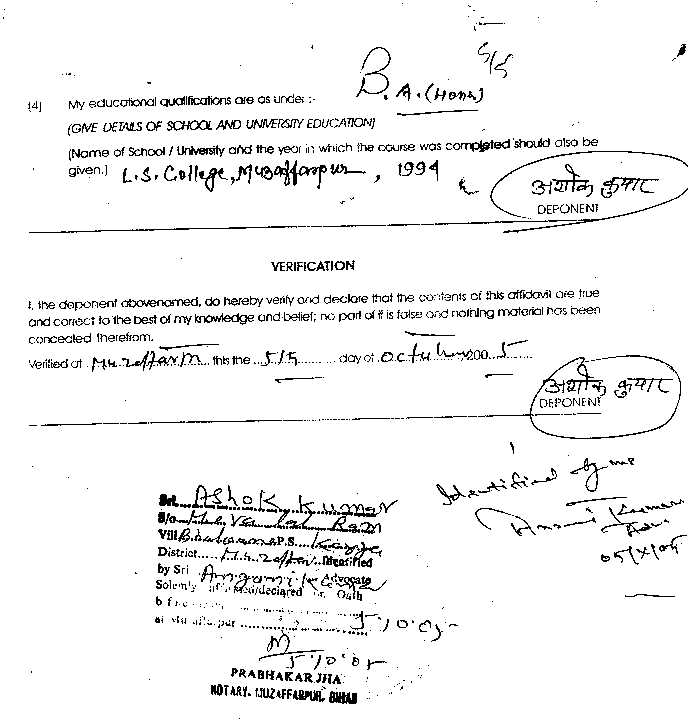 5/5
B.A. (Hons)
[4] My educational qualifications are as under :-
(GIVE DETAILS OF SCHOOL AND UNIVERSITY EDUCATION)
(Name of School / University and the year in which the course was completed should also be
given.) L.S. College, Muzaffarpur, 1994
अशोक कुमार
DEPONENT
VERIFICATION
I, the deponent abovenamed, do hereby verify and declare that the contents of this affidavit are true
and correct to the best of my knowledge and belief; no part of it is false and nothing material has been
concealed therefrom.
Verified at this the 5/5 day of 200 5
अशोक कुमार
DEPONENT
Identified by me
Kumar
Adv.
05/X/05
Sri. Ashok Kumar
S/o Ram
Vill P.S.
District Identified
by Sri Advocate
Solemly affirmed/declared on Oath
5.10.05
5.10.05
PRABHAKAR JHA
NOTARY, MUZAFFARPUR, BIHAR